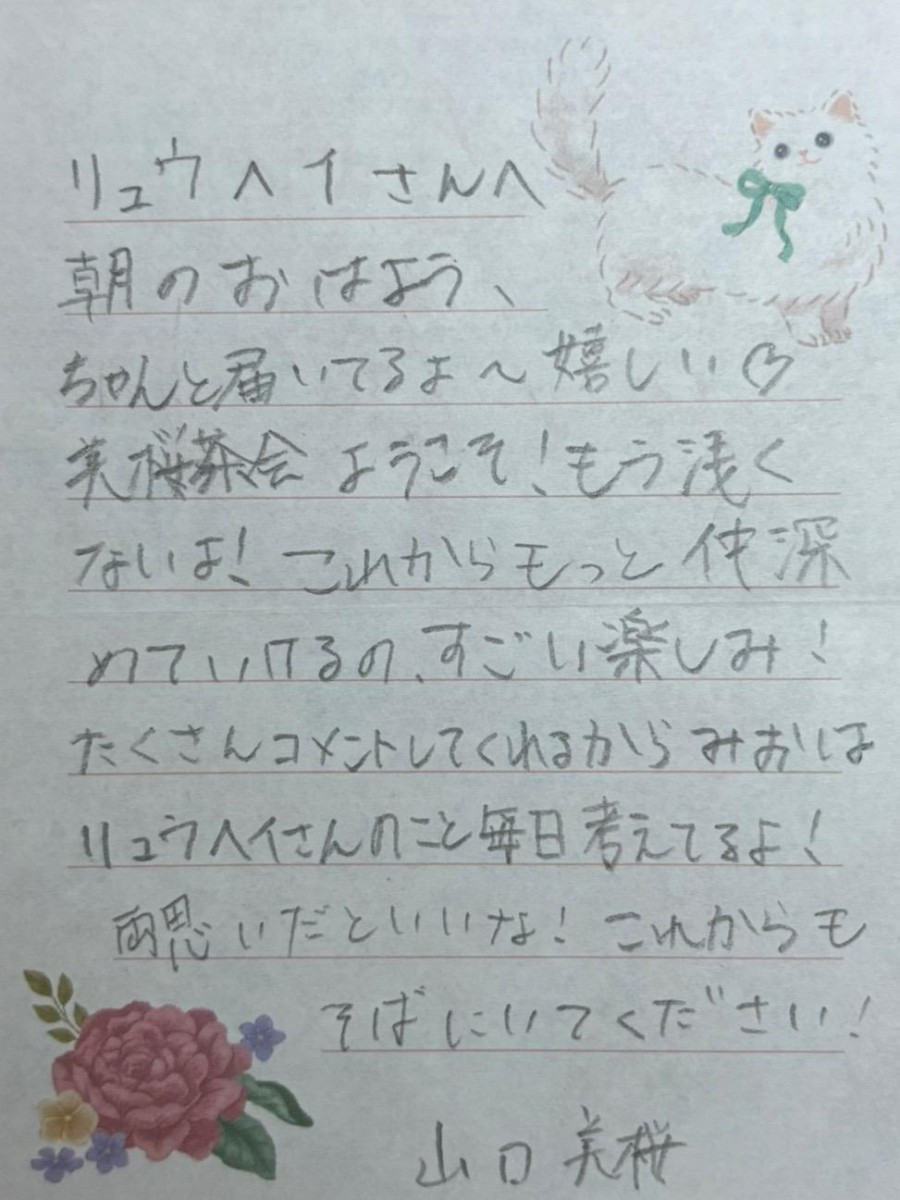 リュウヘイさんへ
朝のおはよう、
ちゃんと届いてるよ〜嬉しい♡
美桜茶会ようこそ!もう浅く
ないよ!これからもっと仲深
めていけるの、すごい楽しみ!
たくさんコメントしてくれるからみおは
リュウヘイさんのこと毎日考えてるよ!
両思いだといいな!これからも
そばにいてください!
山口美桜